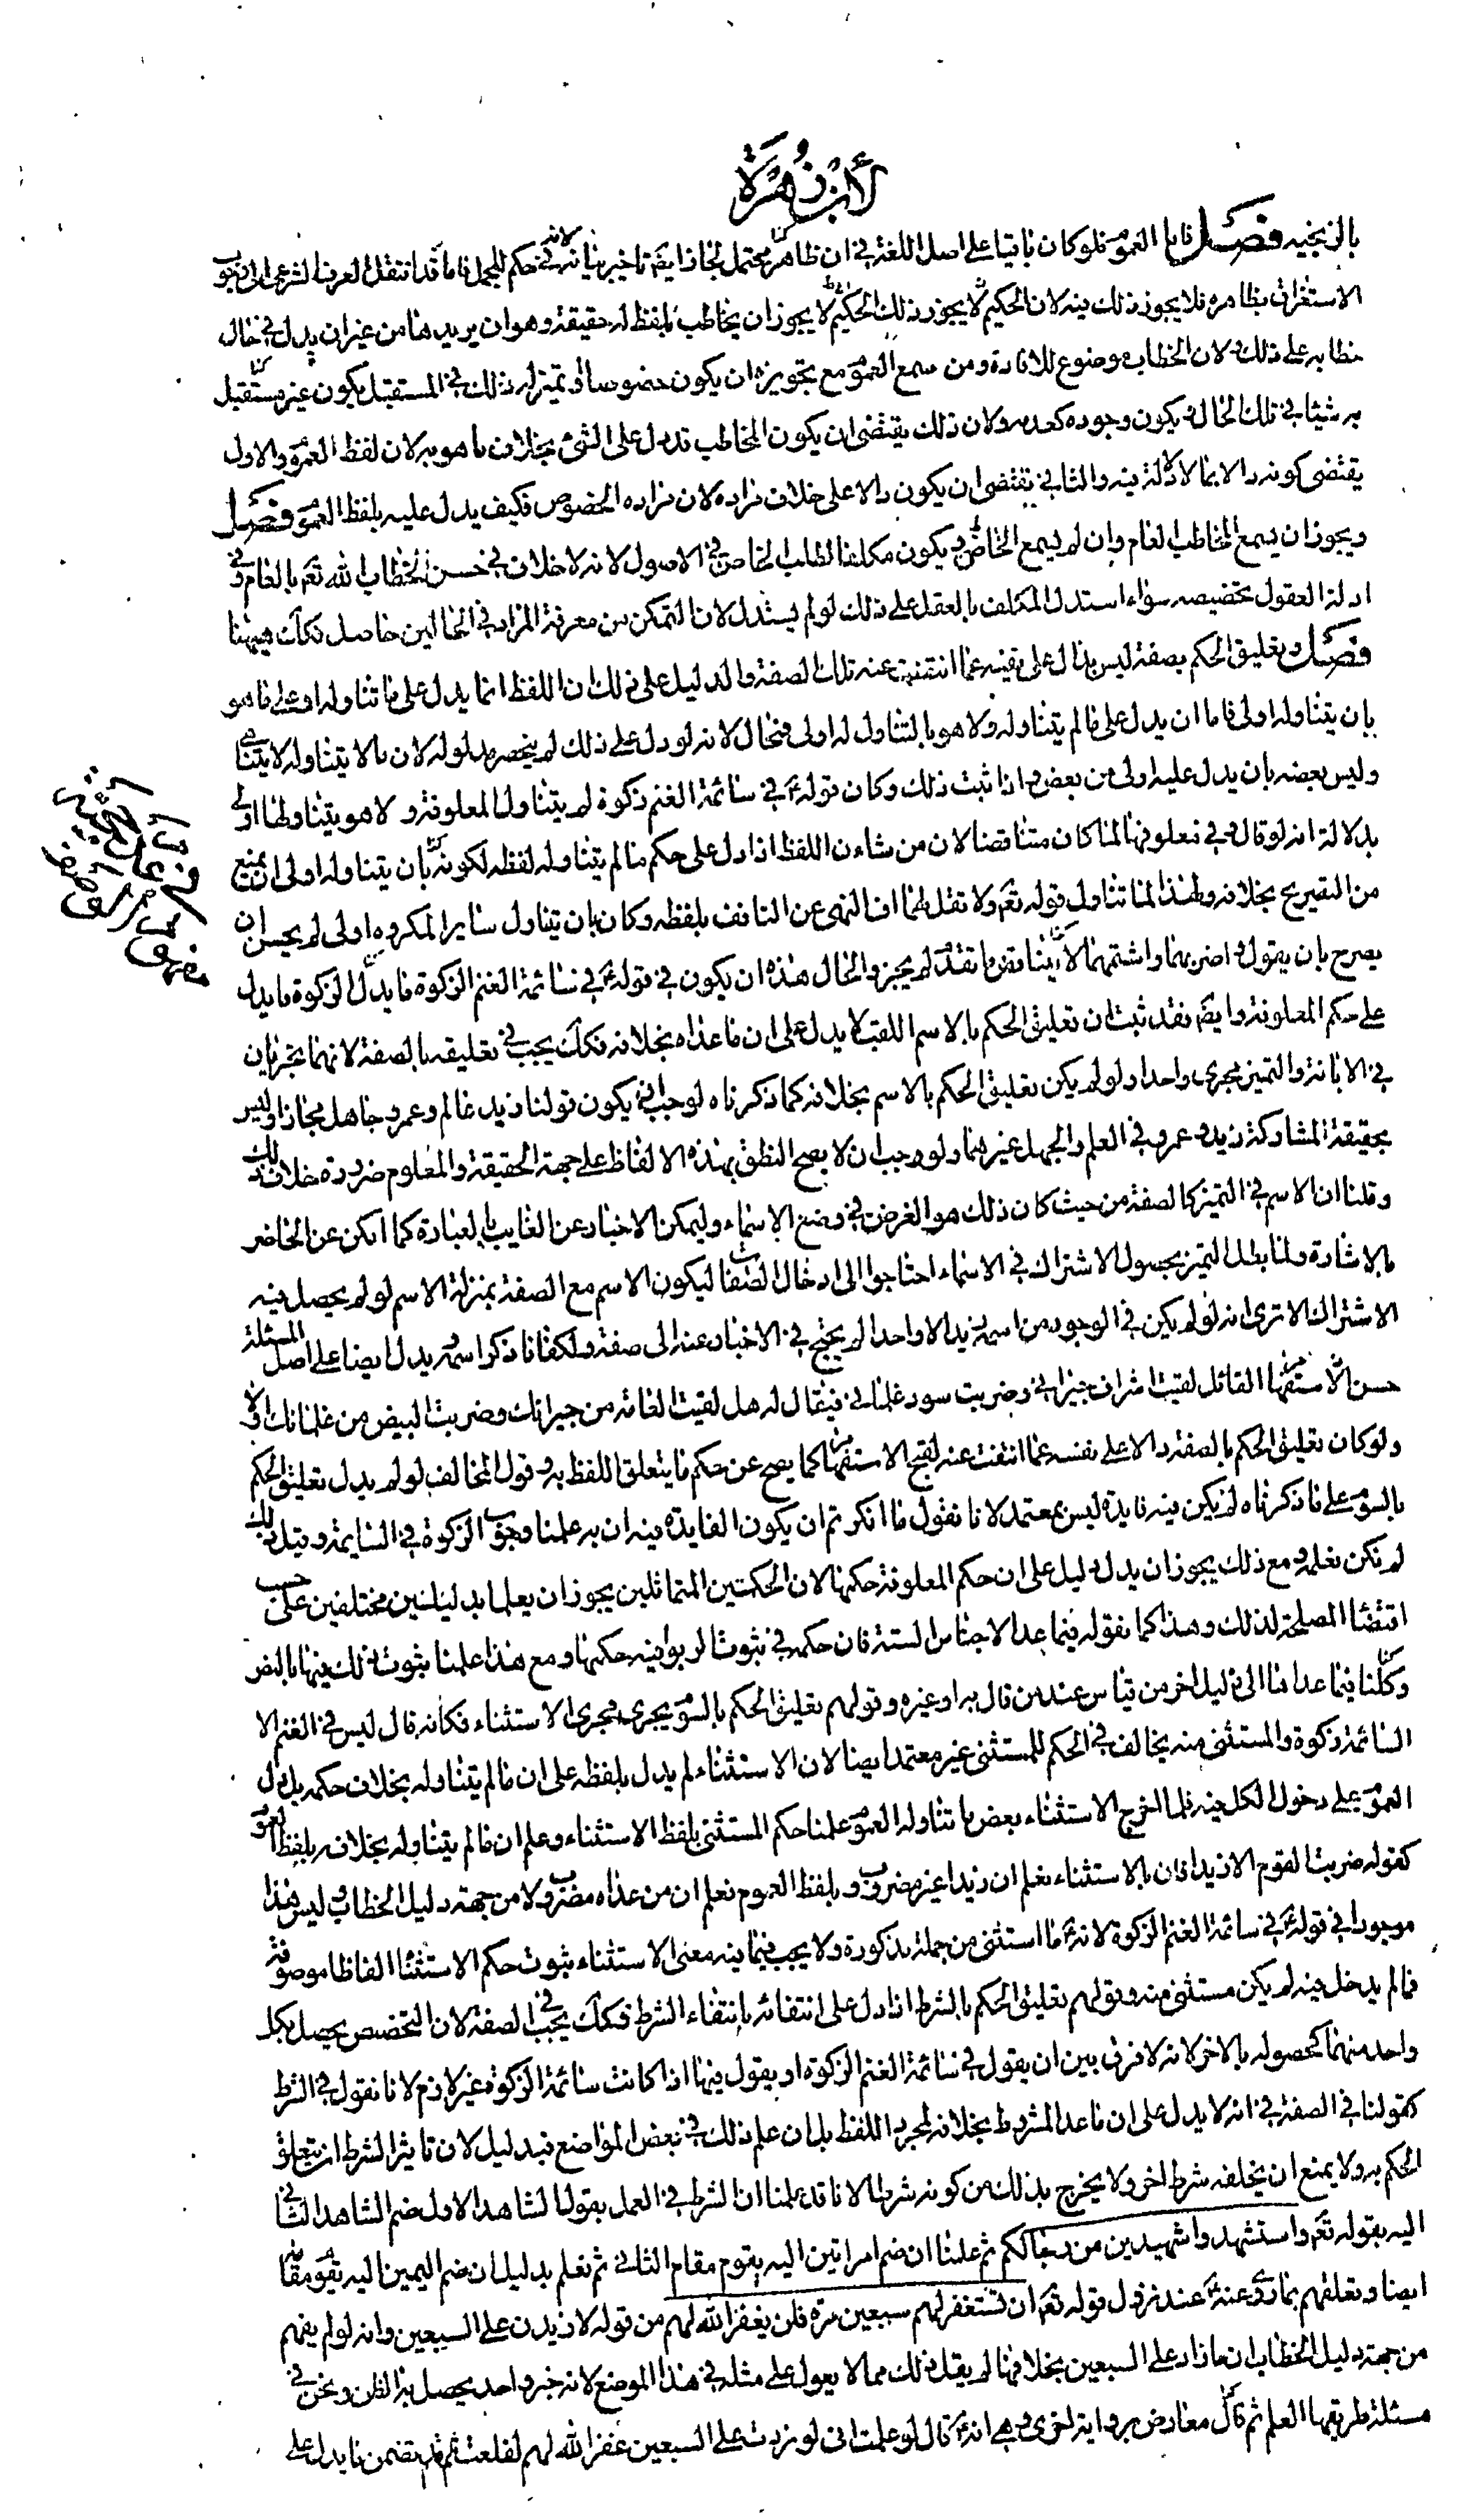 لابن زهرة
بالزنجية فصل فاما العموم فلو كان باقيا على اصل اللغة في ان ظاهره محتمل لجاز ايضا تاخير بيانه لانه في حكم المجمل فاما قد انتقل العرف الشرعى الى وجوب
الاستغراق بظاهره فلا يجوز ذلك فيه لان الحكيم لا يجوز ان يخاطب بلفظ له حقيقة وهو ان يريدها من غير ان يدل في حال
خطابه على ذلك ولان الخطاب وضوع للافادة ومن سمع العموم مع تجويزه ان يكون مخصوصا و تميز له ذلك في المستقبل يكون غير مستقبل
به شيئا في تلك الحال ويكون وجوده كعدمه ولان ذلك يقتضى ان يكون المخاطب قد دل على الشئ بخلاف ما هو به لان لفظ العموم والاول
يقتضى كونه دالا بما لا دلالة فيه والثانى يقتضى ان يكون دالا على خلاف مراده لان مراده الخصوص فكيف يدل عليه بلفظ العموم فصل
ويجوز ان يسمع المخاطب العام وان لم يسمع الخاص ويكون مكلفا لطلب الخاص في الاصول لانه لا خلاف في حسن الخطاب الله تعم بالعام وفى
ادلة العقول تخصيصه سواء استدل المكلف بالعقل على ذلك او لم يستدل لان التمكن من معرفة المراد في الحالين حاصل فكك هيهنا
فصل وتعليق الحكم بصفة ليس بدال على نفيه عما انتفت عنه تلك الصفة والدليل على ذلك ان اللفظ انما يدل على ما تناوله او على ما هو
بان يتناوله اولى فاما ان يدل على ما لم يتناوله ولا هو بالتناول له اولى فمحال لانه لو دل على ذلك لم ينحصر مدلوله لان ما لا يتناوله لا يتناهى
وليس بعضه بان يدل عليه اولى من بعض و اذا ثبت ذلك وكان قوله ع في سائمة الغنم زكوة لم يتناول المعلوفة و لا هو بتناولها اولى
بدلالة انه لو قال و في معلوفها لما كان متناقضا لان من شان اللفظ اذا دل على حكم ما لم يتناوله لفظه لكونه بان يتناوله اولى ان يمنع
من التصريح بخلافه ولهذا لما تناول قوله تعم ولا تقل لهما اف النهى عن التافف بلفظه وكان بان يتناول ساير المكروه اولى لم يحسن ان
يصرح بان يقول و اضربهما واشتمهما لانه يناقض ما تقدم لم يجز والحال هذه ان يكون في قوله ع في سائمة الغنم الزكوة ما يدل
على حكم المعلوفة وايضا فقد ثبت ان تعليق الحكم بالاسم اللقب لا يدل على ان ما عداه بخلافه فكك يجب في تعليقه بالصفة لانهما يجريان
في الابانة والتميز مجرى واحدا ولو لم يكن تعليق الحكم بالاسم بخلافه كما ذكرناه لوجب ان يكون قولنا زيد عالم وعمرو جاهل مجازا وليس
بحقيقة لمشاركة زيد و عمرو في العلم والجهل غيرهما ولوجب ان لا يصح النطق بهذه الالفاظ على جهة الحقيقة والمعلوم ضرورة خلاف ذلك
وقلنا ان الاسم في التميز كالصفة من حيث كان ذلك هو الغرض في وضع الاسماء وليمكن الاخبار عن الغايب بالعبادة كما امكن عن الحاضر
بالاشارة ولما بطل التميز بحصول الاشتراك في الاسماء احتاجوا الى ادخال الصفات ليكون الاسم مع الصفة بمنزلة الاسم لو لم يحصل فيه
الاشتراك الا ترى انه لو لم يكن في الوجود من اسمه زيد الا واحدا لم يحتج في الاخبار عنه الى صفة ولكفانا ذكر اسمه ويدل ايضا على اصل المسئلة
حسن الاستفهام القائل لقيت اشراف جيرانى وضربت سود غلمانى فيقال له هل لقيت العامة من جيرانك وضربت البيض من غلمانك او لا
ولو كان تعليق الحكم بالصفة دالا على نفسه عما انتفت عنه لقبح الاستفهام كما يصح عن حكم ما يتعلق اللفظ به و قول المخالف لو لم يدل تعليق الحكم
بالسوم على ما ذكرناه لم يكن فيه فايدة ليس بمعتمد لانا نقول ما انكرتم ان يكون الفايدة فيه ان به علمنا وجوب الزكوة في السايمة وقبل ذلك
لم نكن نعلم و مع ذلك يجوز ان يدل دليل على ان حكم المعلوفة حكمها لان الحكمين المتماثلين يجوز ان يعلما بدليلين مختلفين على حسب
اقتضاء المصلحة لذلك وهذا كما نقوله فيما عدا الاجناس الستة فان حكمه في ثبوت الربوا فيه حكمها ومع هذا علمنا ثبوت ذلك فيها بالنص
وكلنا فيما عداها الى دليل اخر من قياس عند من قال به او غيره وقولهم تعليق الحكم بالسوم يجرى مجرى الاستثناء فكانه قال ليس في الغنم الا
السائمة زكوة والمستثنى منه يخالف في الحكم للمستثنى غير معتمد ايضا لان الاستثناء لم يدل بلفظه على ان ما لم يتناوله بخلاف حكمه بل دل
العموم على دخول الكل فيه فلما اخرج الاستثناء بعض ما تناوله العموم علمنا حكم المستثنى بلفظ الاستثناء وعلم ان ما لم يتناوله بخلافه بلفظ العموم
كقوله ضربت القوم الا زيدا فان بالاستثناء نعلم ان زيدا غير مضروب و بلفظ العموم نعلم ان من عداه مضروب لا من جهة دليل الخطاب وليس هذا
موجودا في قوله ع في سائمة الغنم الزكوة لانه ع ما استثنى من جملة مذكورة ولا يجب فيما فيه معنى الاستثناء ثبوت حكم الاستثناء الفاظا موصوفة
فما لم يدخل فيه لم يكن مستثنى منه وقولهم تعليق الحكم بالشرط اذا دل على انتفائه بانتفاء الشرط فكك يجب في الصفة لان التخصص يحصل بكل
واحد منهما كحصوله بالاخر لانه لا فرق بين ان يقول في سائمة الغنم الزكوة او يقول فيها اذا كانت سائمة الزكوة غير لازم لانا نقول في الشرط
كقولنا في الصفة في انه لا يدل على ان ما عدا المشروط بخلافه لمجرد اللفظ بل ان علم ذلك في بعض المواضع فبدليل لان تاثير الشرط ان يتعلق
الحكم به ولا يمنع ان يخلفه شرط اخر ولا يخرج بذلك من كونه شرطا لانا قد علمنا ان الشرط في العمل بقول الشاهد الاول ضم الشاهد الثانى
اليه بقوله تعم واستشهدوا شهيدين من رجالكم ثم علمنا ان ضم امراتين اليه يقوم مقام الثانى ثم نعلم بدليل ان ضم اليمين اليه يقوم مقامه
ايضا وتعلقهم بما روى عنه ع عند نزول قوله تعم ان تستغفر لهم سبعين مرة فلن يغفر الله لهم من قوله لازيدن على السبعين وانه لو لم يفهم
من جهة دليل الخطاب ان ما زاد على السبعين بخلافها لم يقل ذلك مما لا يعول على مثله في هذا الموضع لانه خبر واحد يحصل به الظن ونحن في
مسئلة طريقها العلم ثم معارض برواية اخرى وهى انه ع قال لو علمت انى لو زدت على السبعين غفر الله لهم لفعلت ثم يتضمن ما يدل على